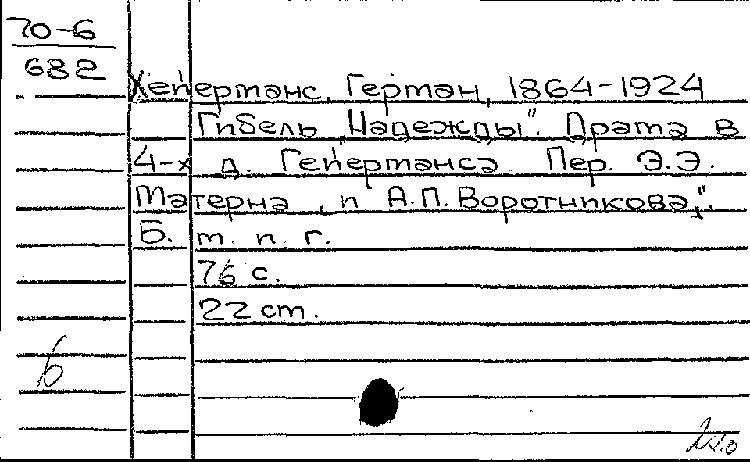 70-6
682
Хейерманс, Герман, 1864-1924
Гибель „Надежды". Драма в
4-х д. Гейерманса Пер. Э.Э.
Матерна, и А.П.Воротникова,".
Б. м. и. г.
76 с.
22 см.
б